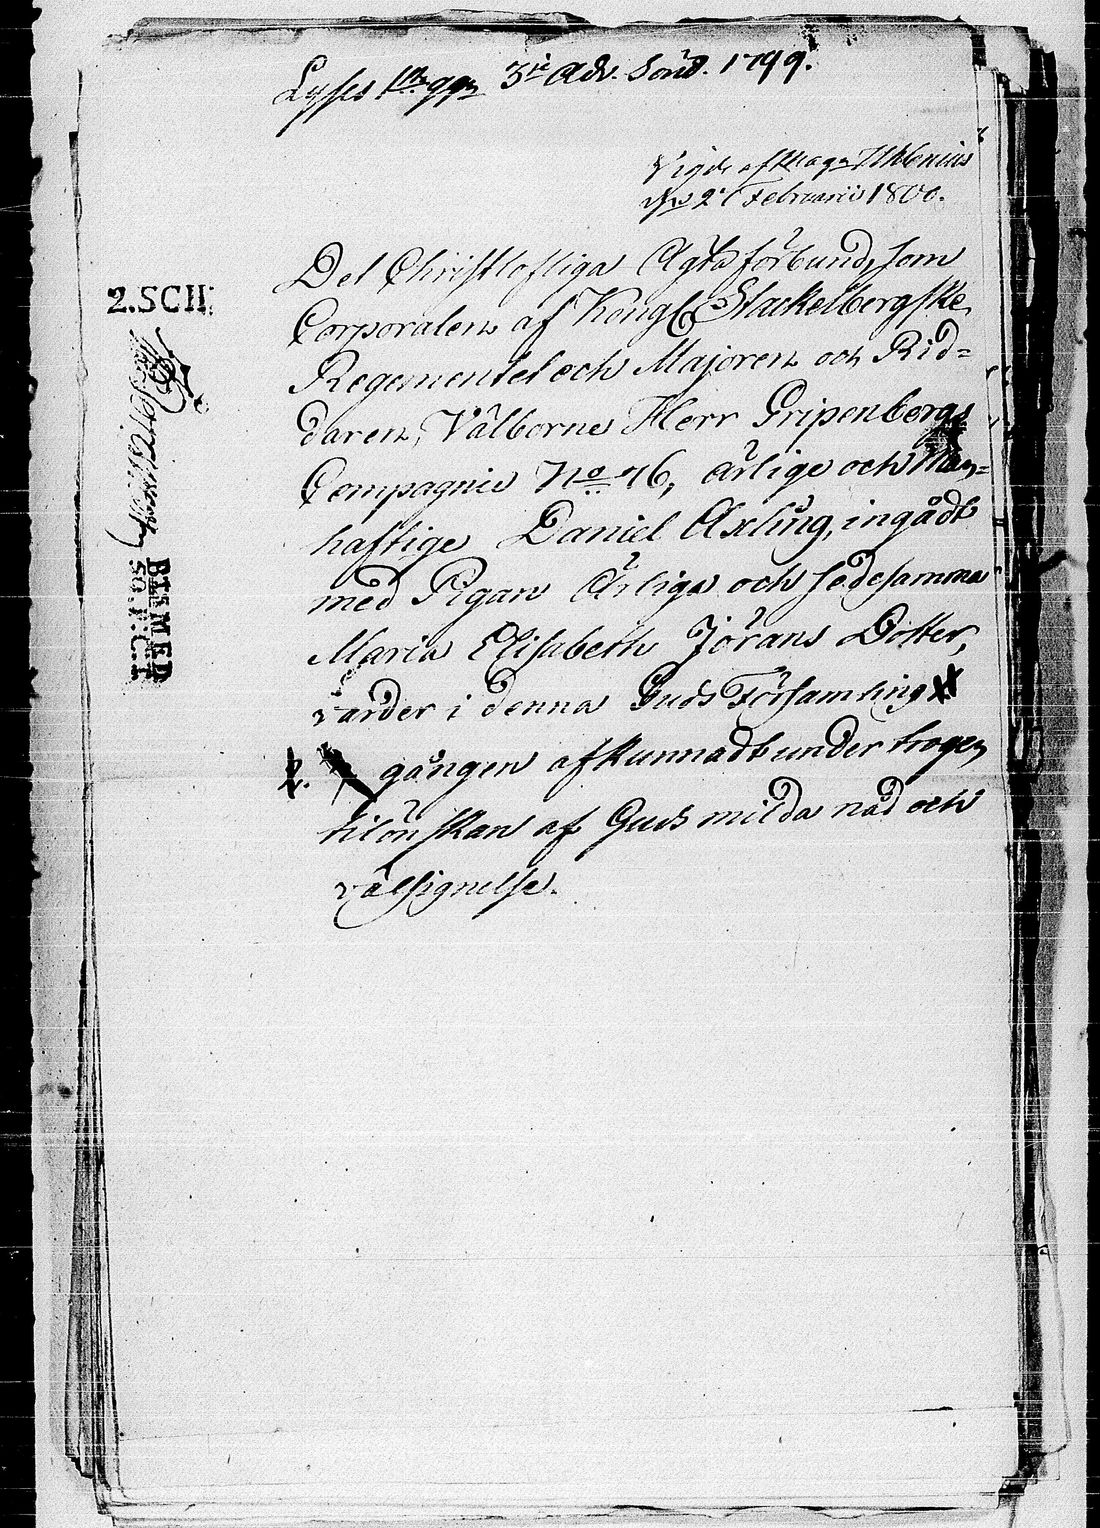 Lyses 1sta ggn 3ie Adv. Sönd. 1799.
Vigde af Mag.
den 2 Februarii 1800.
Det Christlofliga Ägta förbund, som
Corporalen af Kongl. Stackelbergske
Regementet och Majoren och Rid=
daren, Välborne Herr Gripenbergs
Compagnie No 76, ärlige och Man=
haftige Daniel Axling, ingådt
med Pigan Ärliga och sedesamma
Maria Elisabeth Jörans Dotter,
varder i denna Guds Församling
2. gången afkunnadt under trogen
tilönskan af Guds milda nåd och
välsignelse.
2.SCH: